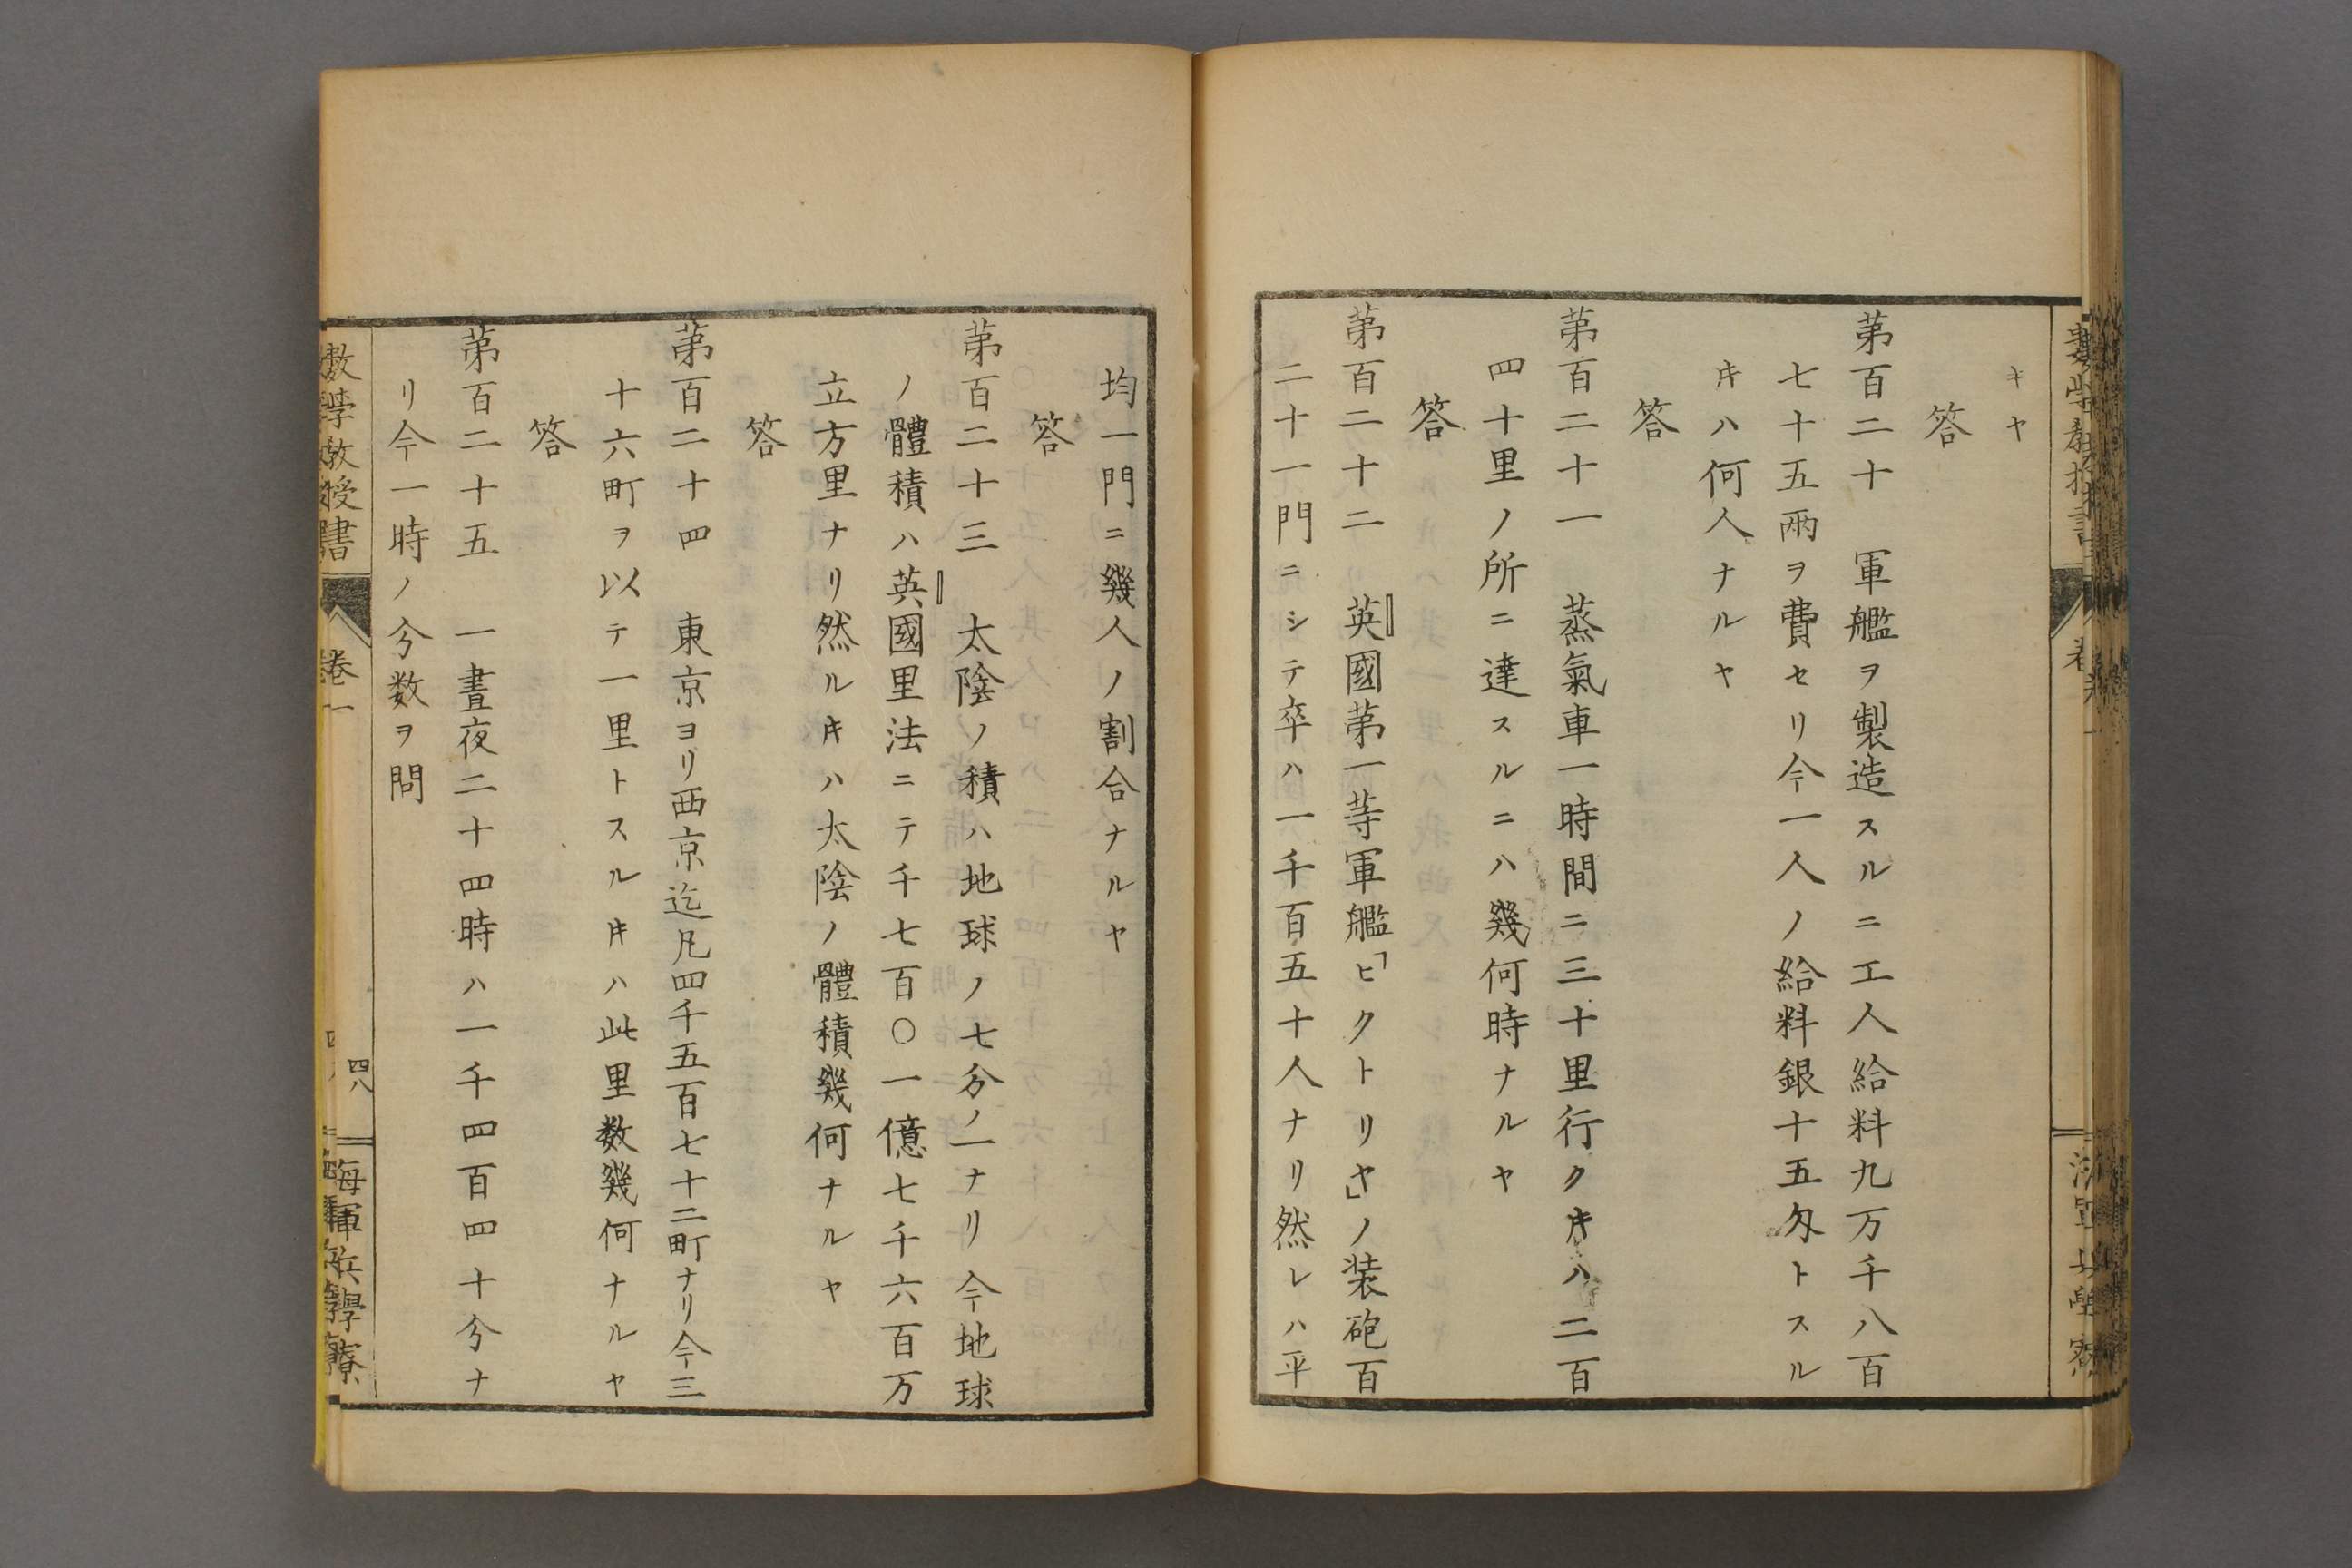 キヤ
答
第百二十　軍艦ヲ製造スルニ工人給料九万千八百
七十五兩ヲ費セリ今一人ノ給料銀十五匁トスル
𪜈ハ何人ナルヤ
答
第百二十一　蒸氣車一時間ニ三十里行ク𪜈ハ二百
四十里ノ所ニ達スルニハ幾何時ナルヤ
答
第百二十二　英國第一等軍艦「ヒクトリヤ」ノ装砲百
二十一門ニシテ卒ハ一千百五十人ナリ然レハ平
均一門ニ幾人ノ割合ナルヤ
答
第百二十三　太陰ノ積ハ地球ノ七分ノ一ナリ今地球
ノ體積ハ英國里法ニテ千七百〇一億七千六百万
立方里ナリ然ル𪜈ハ太陰ノ體積幾何ナルヤ
答
第百二十四　東京ヨリ西京迄凡四千五百七十二町ナリ今三
十六町ヲ以テ一里トスル𪜈ハ此里数幾何ナルヤ
答
第百二十五　一晝夜二十四時ハ一千四百四十分ナ
リ今一時ノ分数ヲ問
數學教授書
卷一
四八
海軍兵學寮